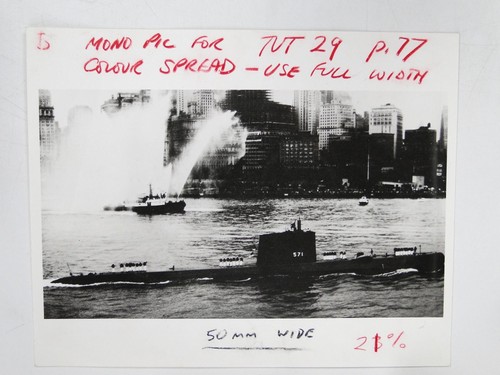 MONO PIC FOR TUT 29 p.77
COLOUR SPREAD - USE FULL WIDTH
571
50MM WIDE
21%